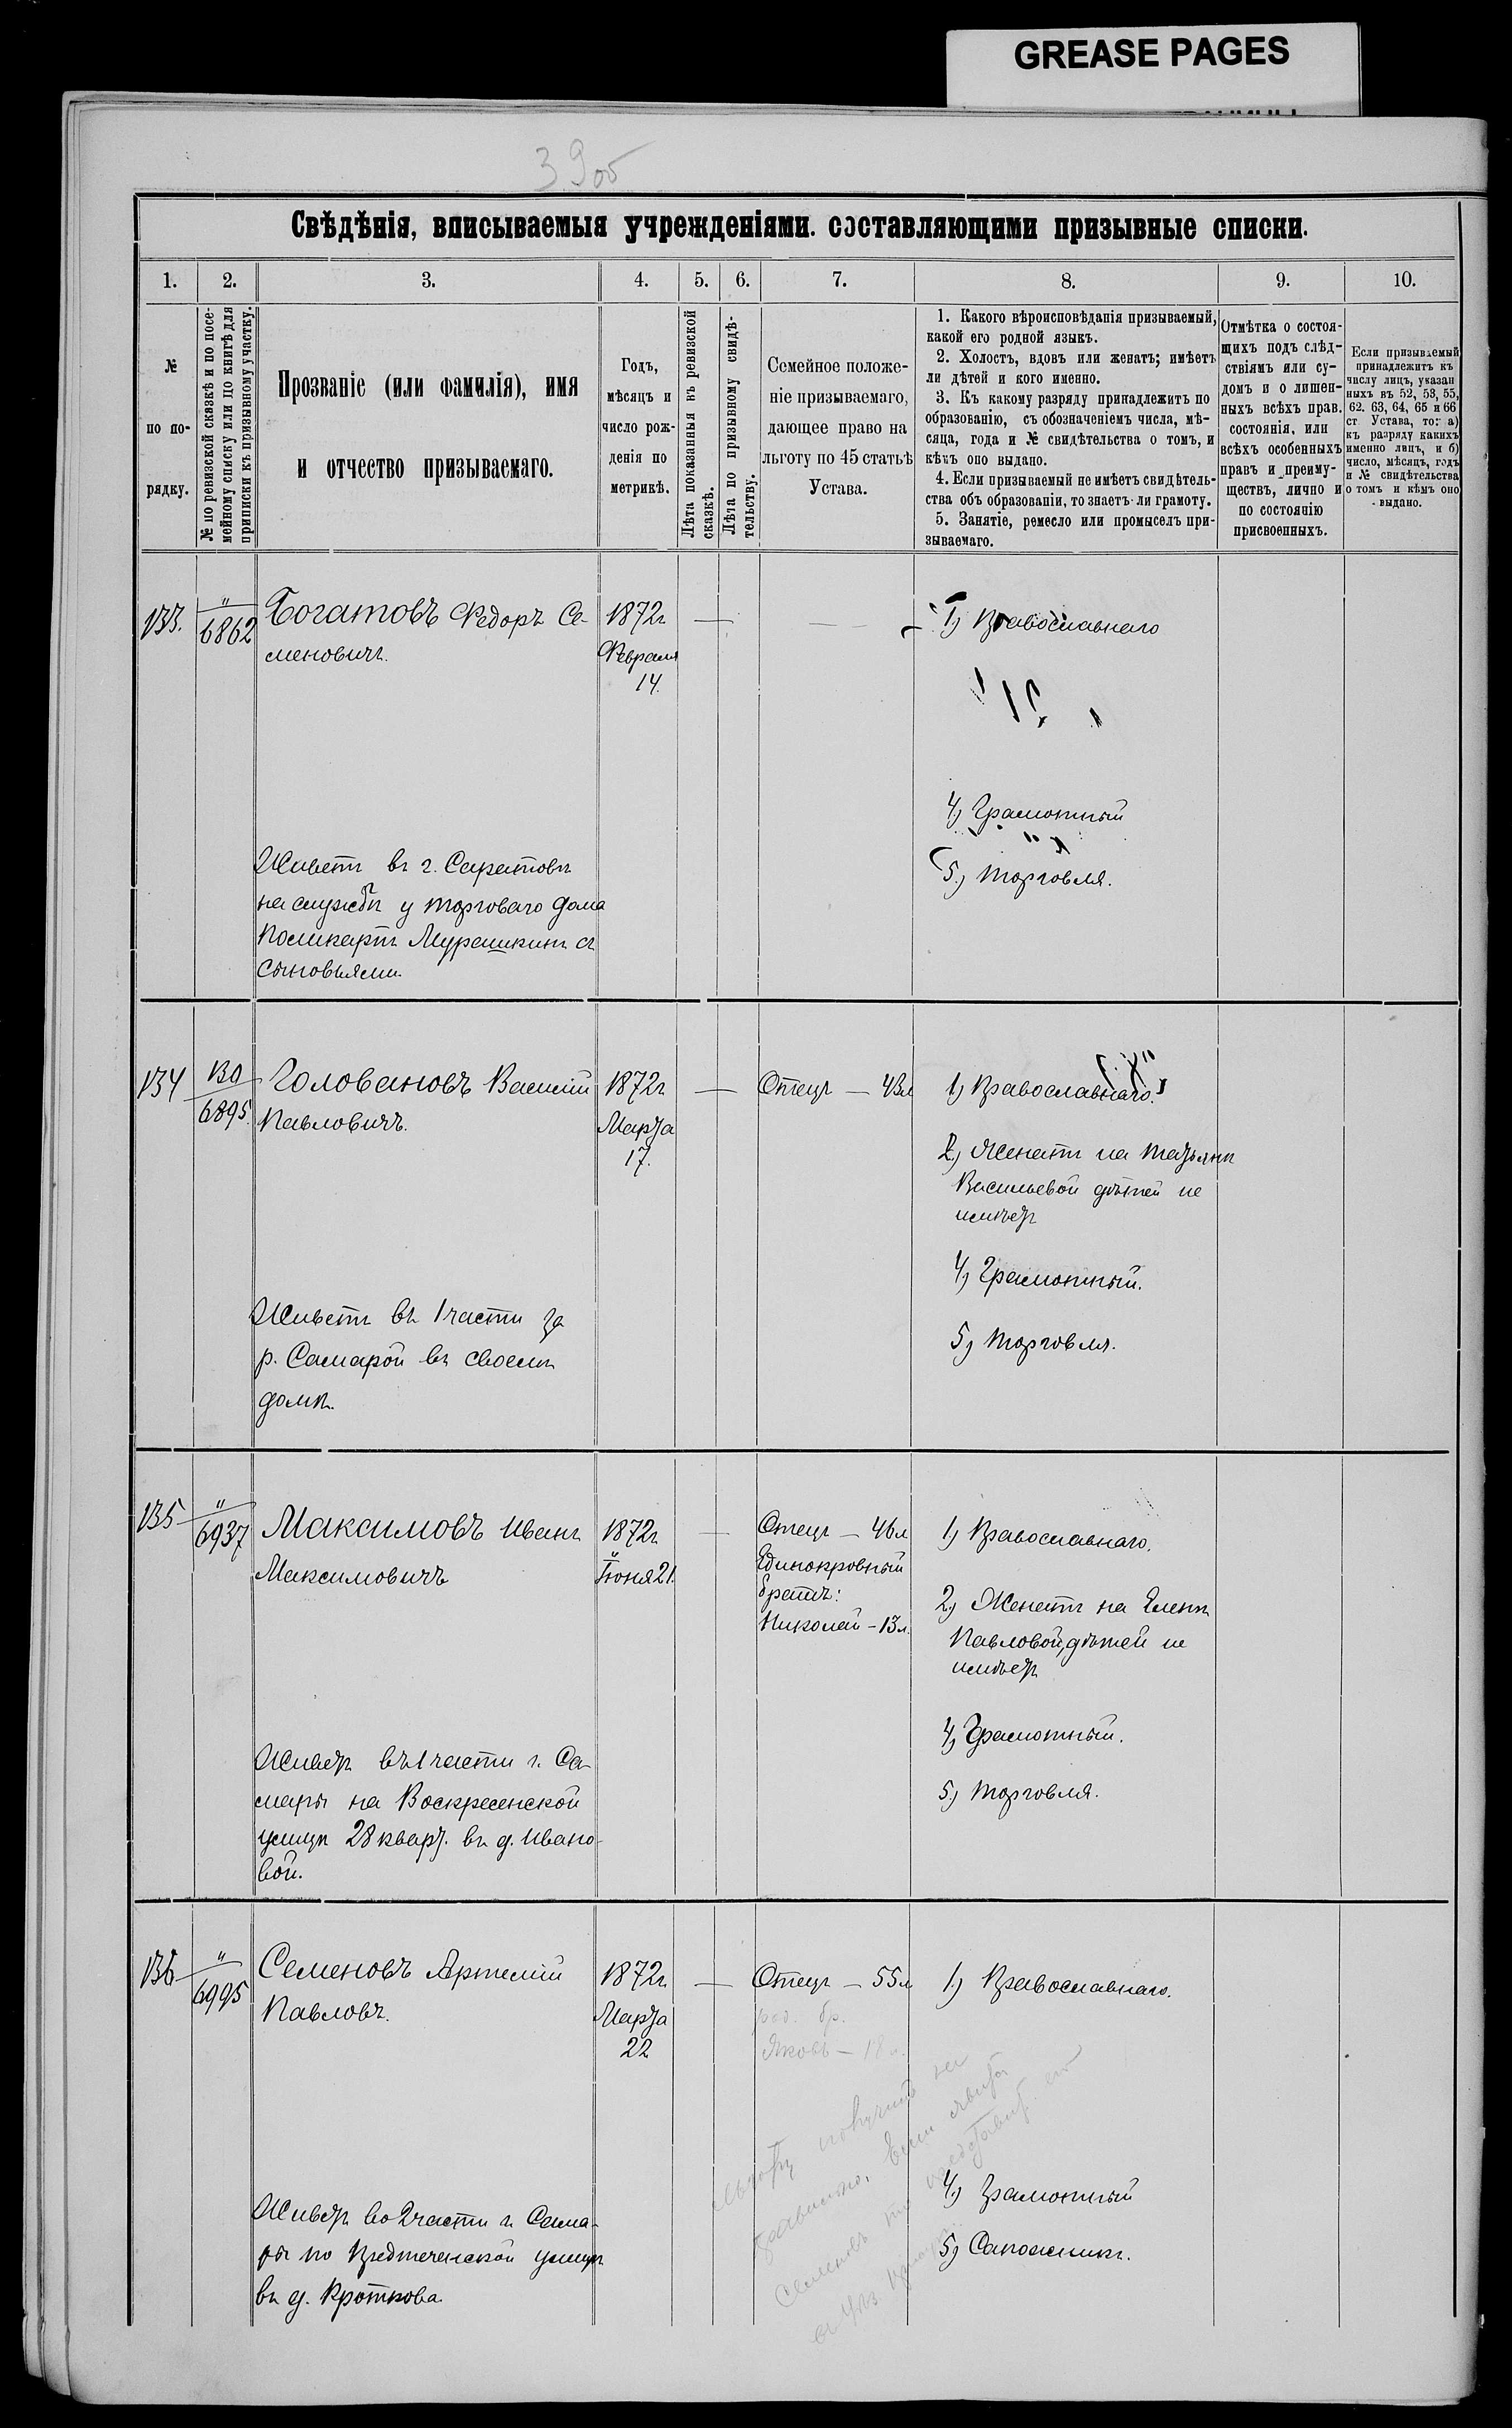 GREASE PAGES
39об
Свѣдѣнія, вписываемыя учрежденіями, составляющими призывные списки.
1.
2.
3.
4.
5.
6.
7.
8.
9.
10.
№
по по-
рядку.
№ по ревизской сказкѣ и по посе-
мейному списку или по книгѣ для
приписки къ призывному участку.
Прозваніе (или фамилія), имя
и отчество призываемаго.
Годъ,
мѣсяцъ и
число рож-
денія по
метрикѣ.
Лѣта показанныя въ ревизской
сказкѣ.
Лѣта по призывному свидѣ-
тельству.
Семейное положе-
ніе призываемаго,
дающее право на
льготу по 45 статьѣ
Устава.
1. Какого вѣроисповѣданія призываемый,
какой его родной языкъ.
2. Холостъ, вдовъ или женатъ; имѣетъ
ли дѣтей и кого именно.
3. Къ какому разряду принадлежитъ по
образованію, съ обозначеніемъ числа, мѣ-
сяца, года и № свидѣтельства о томъ, и
кѣмъ оно выдано.
4. Если призываемый не имѣетъ свидѣтель-
ства объ образованіи, то знаетъ-ли грамоту.
5. Занятіе, ремесло или промыселъ при-
зываемаго.
Отмѣтка о состоя-
щихъ подъ слѣд-
ствіямъ или су-
домъ и о лишен-
ныхъ всѣхъ прав.
состоянія, или
всѣхъ особенныхъ
правъ и преиму-
ществъ, лично и
по состоянію
присвоенныхъ.
Если призываемый
принадлежитъ къ
числу лицъ, указан
ныхъ въ 52, 53, 55,
62. 63, 64, 65 и 66
ст. Устава, то: а)
къ разряду какихъ
именно лицъ, и б)
число, мѣсяцъ, годъ
и № свидѣтельства
о томъ и кѣмъ оно
выдано.
133.
"
6862
Богатовъ Федоръ Се-
меновичъ.
1872г
Февраля
14.
—
—
1) Православнаго
4) Грамотный
5.) Торговля.
Живетъ въ г. Саратовѣ
на службѣ у торговаго дома
Поликарпъ Мурашкинъ съ
сыновьями.
134
130
6895.
Головановъ Василій
Павловичъ.
1872г
Марта
17.
—
Отецъ — 43л
1) Православнаго.
2) Женатъ на Татьянѣ
Васильевой дѣтей не
имѣетъ
4) Грамотный.
5) Торговля.
Живетъ въ 1 части за
р. Самарой въ своемъ
домѣ.
135
"
6937
Максимовъ Иванъ
Максимовичъ
1872г
Іюня 21.
—
Отецъ — 46л
Единокровный
братъ:
Николай - 13л.
1) Православнаго.
2) Женатъ на Еленѣ
Павловой, дѣтей не
имѣетъ
4) Грамотный.
5) Торговля.
Живетъ въ 1 части г. Са-
мары на Воскресенской
улицѣ 28 кварт. въ д. Ивано-
вой.
136
"
6995
Семеновъ Артемій
Павловъ.
1872г
Марта
22
—
Отецъ — 55л
род. бр.
Яковъ —
1) Православнаго.
4) Грамотный
5) Сапожникъ.
Живетъ во 2 части г. Сама-
ры по Предтеченской улицѣ
въ д. Кроткова.